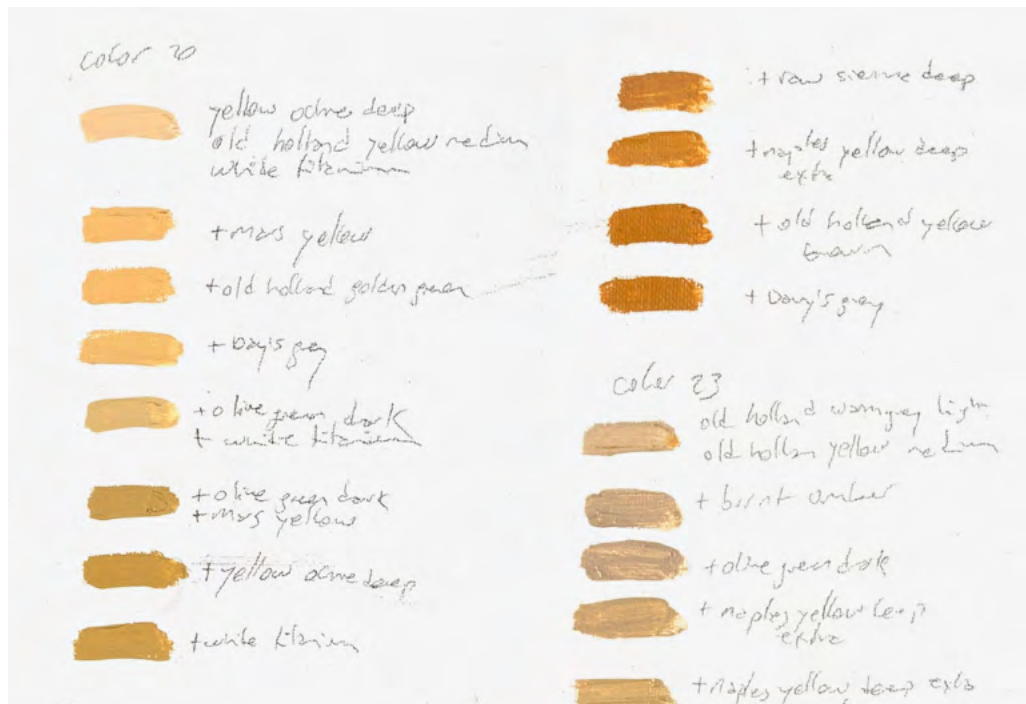 color 20
yellow ochre deep
old holland yellow medium
white titanium
+ mars yellow
+ old holland golden green
+ Davy's grey
+ olive green dark
+ white titanium
+ olive green dark
+ mars yellow
+ yellow ochre deep
+ white titanium
+ raw sienna deep
+ naples yellow deep
extra
+ old holland yellow
brown
+ Davy's grey
color 23
old holland warm grey light
old holland yellow medium
+ burnt umber
+ olive green dark
+ naples yellow deep
extra
+ naples yellow deep extra